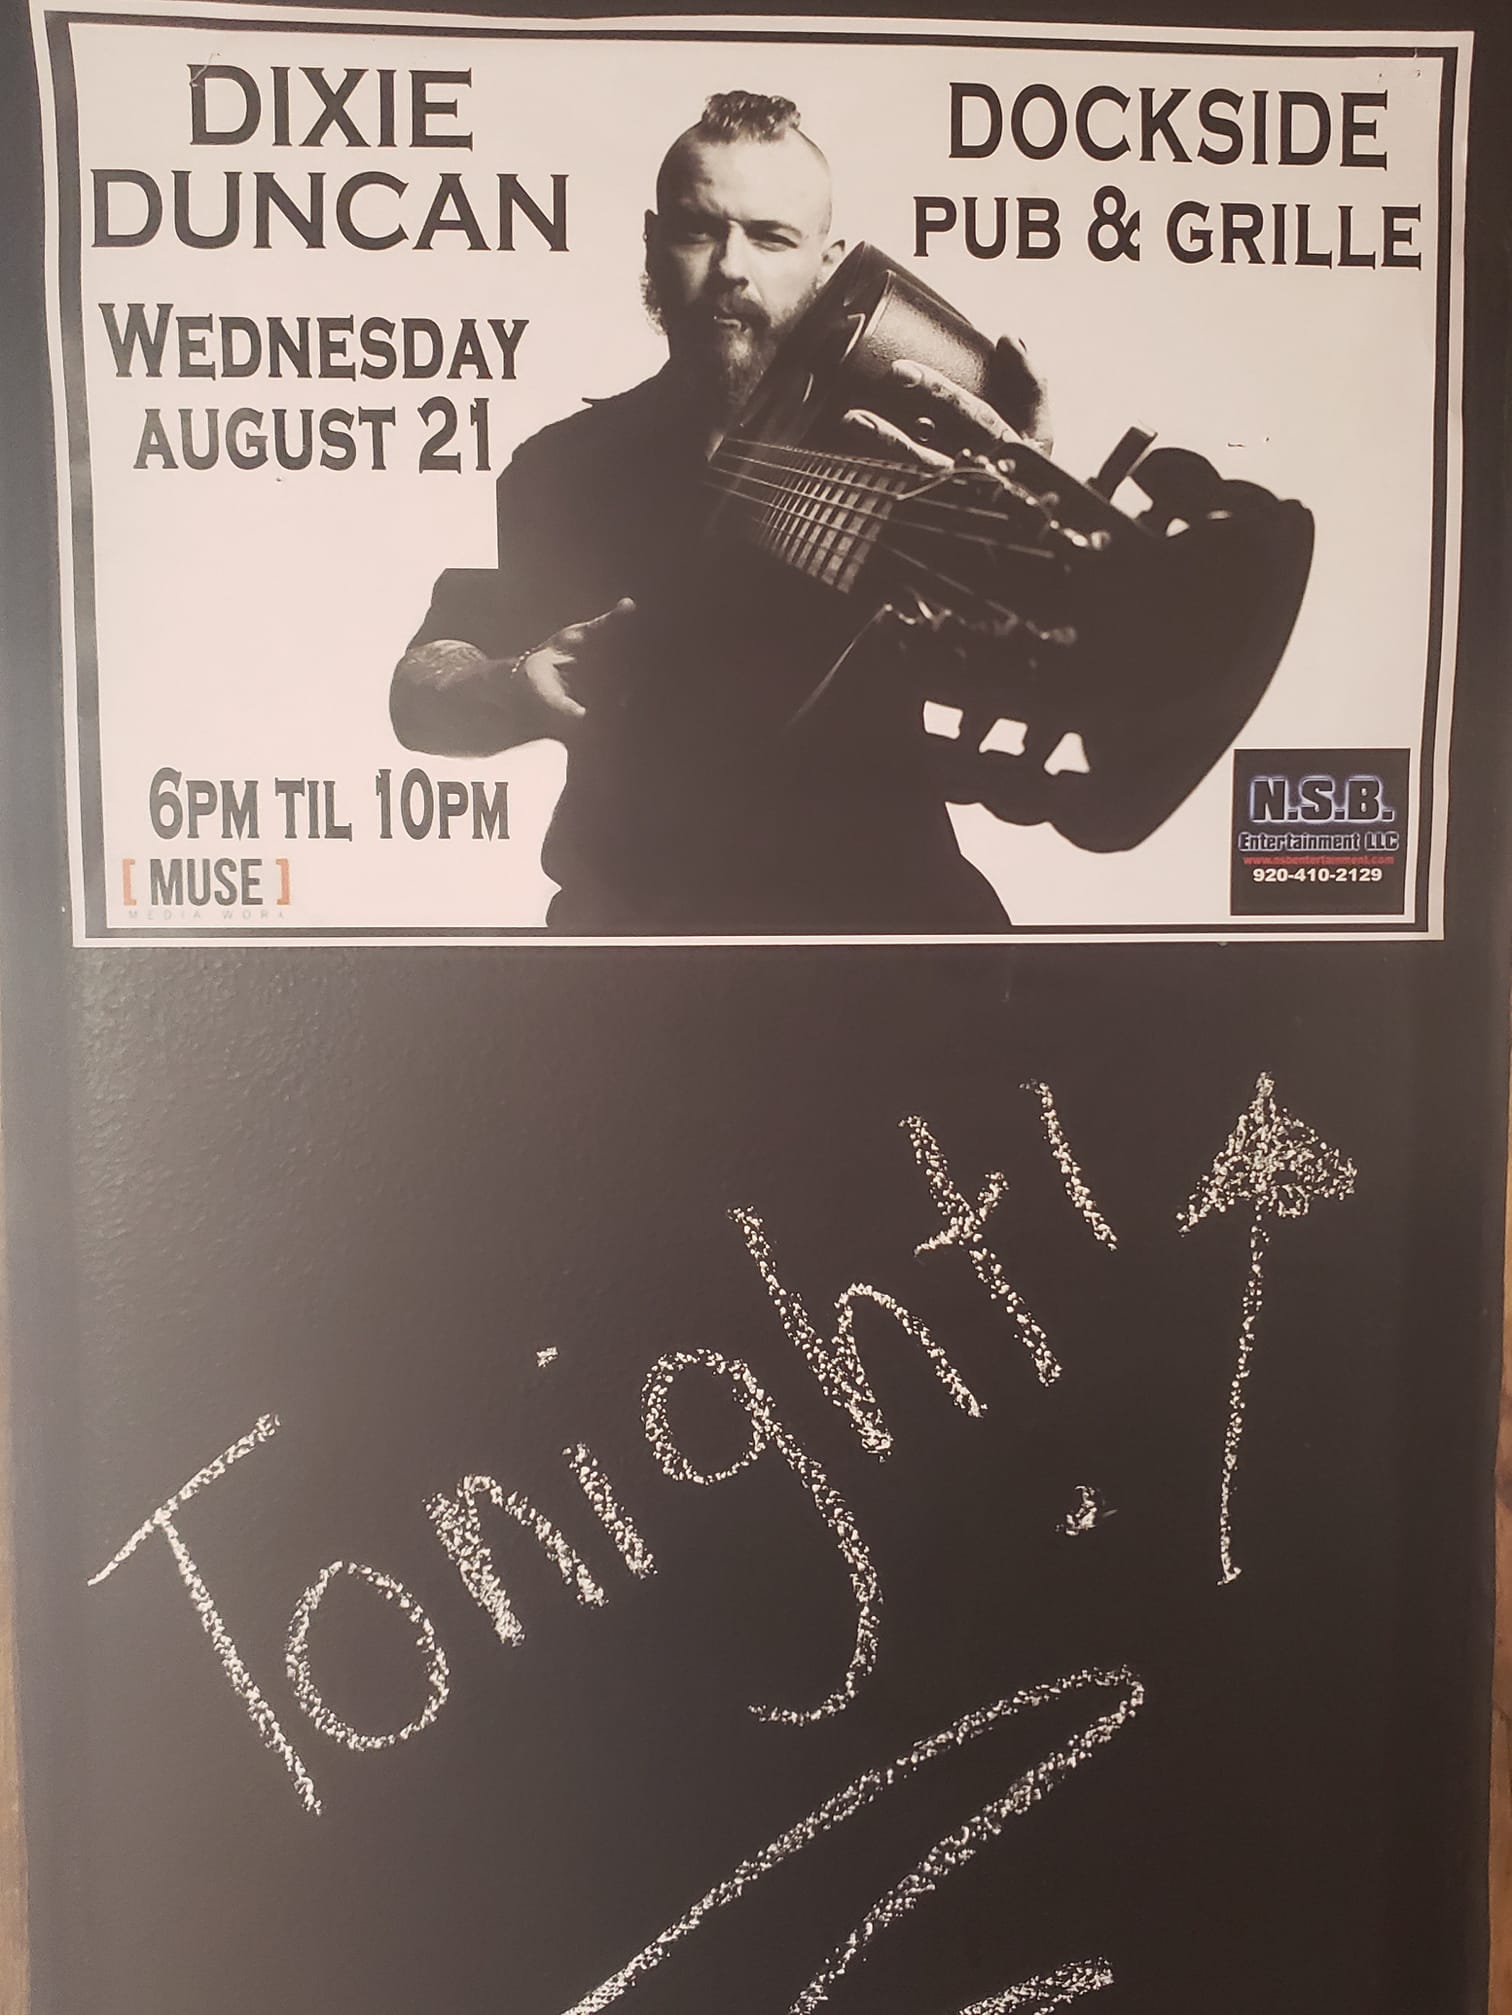 DIXIE
DUNCAN
WEDNESDAY
AUGUST 21
6PM TIL 10PM
[ MUSE ]
MEDIA WORX
DOCKSIDE
PUB & GRILLE
N.S.B.
Entertainment LLC
www.nsbentertainment.com
920-410-2129
Tonight!